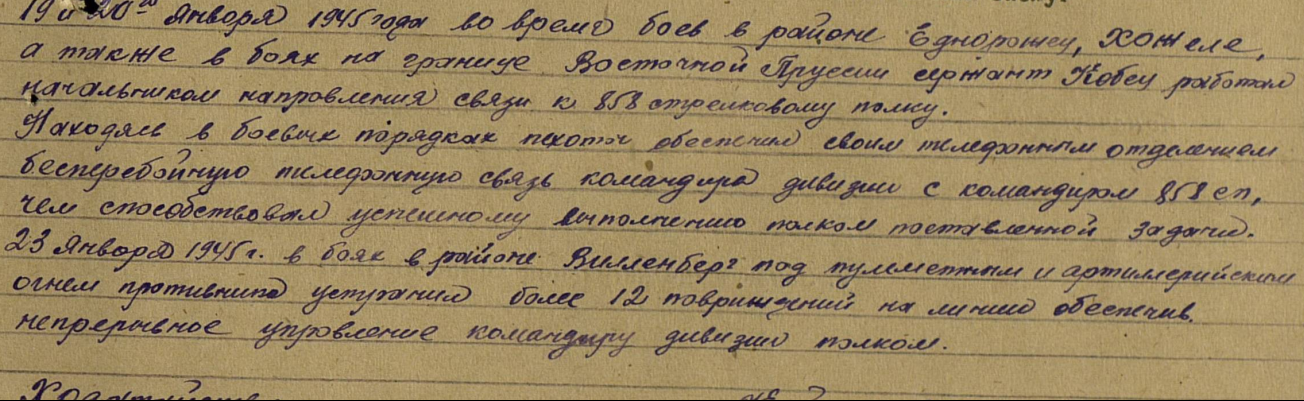 19 и 20го Января 1945 года во время боев в районе Еднорожец, Хожеле,
а также в боях на границе Восточной Пруссии сержант Кобец работал
начальником направления связи к 858 стрелковому полку.
Находясь в боевых порядках пехоты обеспечил своим телефонным отделением
бесперебойную телефонную связь командира дивизии с командиром 858 сп,
чем способствовал успешному выполнению полком поставленной задачи.
23 Января 1945 г. в боях в районе Вилленберг под пулеметным и артиллерийским
огнем противника устранил более 12 повреждений на линии обеспечив
непрерывное управление командиру дивизии полком.